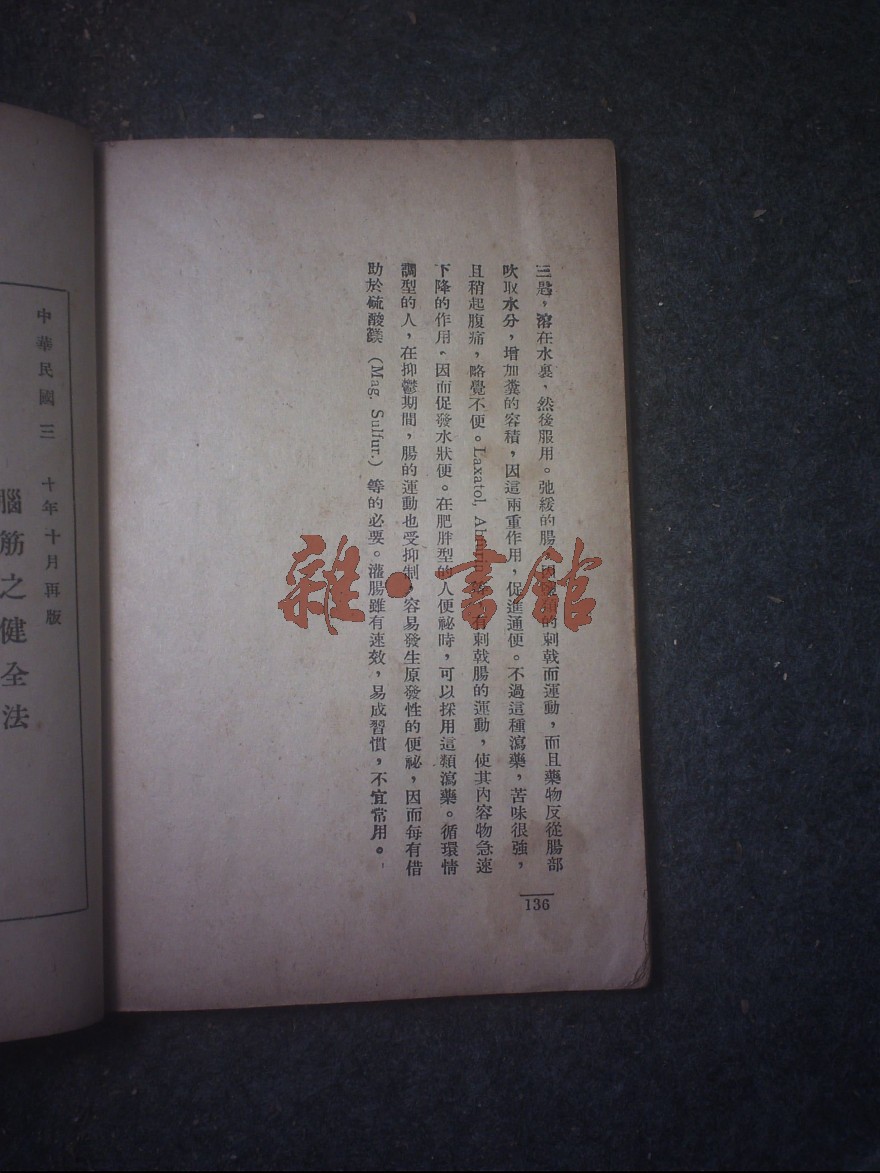 三匙，溶在水裏、然後服用。弛緩的腸，的刺戟而運動，而且藥物反從腸部
吹取水分，增加糞的容積，因這兩重作用，促進通便。不過這種瀉藥，苦味很強，
且稍起腹痛，略覺不便。Laxatol, 有刺戟腸的運動，使其內容物急速
下降的作用、因而促發水狀便。在肥胖型的人便祕時，可以採用這類瀉藥。循環情
調型的人，在抑鬱期間，腸的運動也受抑制，容易發生原發性的便祕，因而每有借
助於硫酸鎂（Mag. Sulfur.）等的必要。灌腸雖有速效，易成習慣，不宜常用。
136
雜·書館
中華民國三十年十月再版
腦筋之健全法